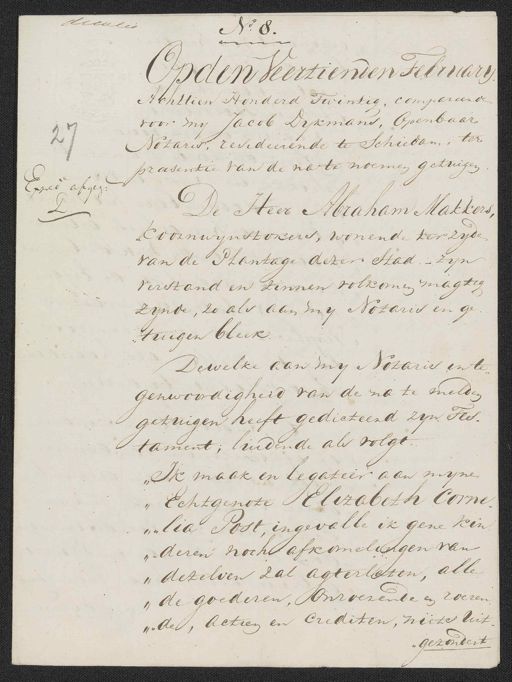 No 8.
27
Op den Veertienden February
Achttien Honderd Twintig, compareerde
voor my Jacob Dykmans, Openbaar
Notaris, resideerende te Schiedam, ter
præsentie van de na te noemen getuigen.
De Heer Abraham Makkers,
Koornwynstoker, wonende ter zyde
van de Plantage dezer Stad zyn
verstand en zinnen volkomen magtig
zynde, zo als aan my Notaris en ge-
tuigen bleek.
Dewelke aan my Notaris in te-
genwoordigheid van de na te melden
getuigen heeft gedicteerd zyn Tes-
tament; luidende als volgt.
„Ik maak en legateer aan myne
„Echtgenote Elizabeth Corne-
„lia Post, ingevalle ik gene kin
„deren noch afkomelingen van
„dezelven zal agterlaten, alle
„de goederen, Onroerende en roeren
„de, actien en crediten, niets uit-
gezondert